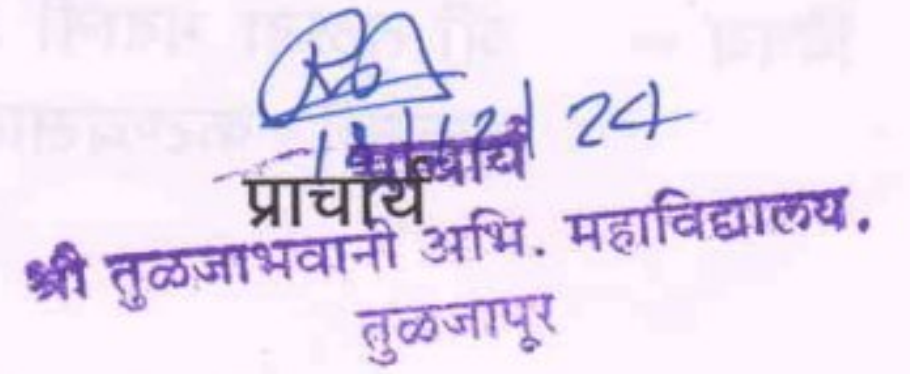 प्राचार्य
प्राचार्य
श्री तुळजाभवानी अभि. महाविद्यालय.
तुळजापूर